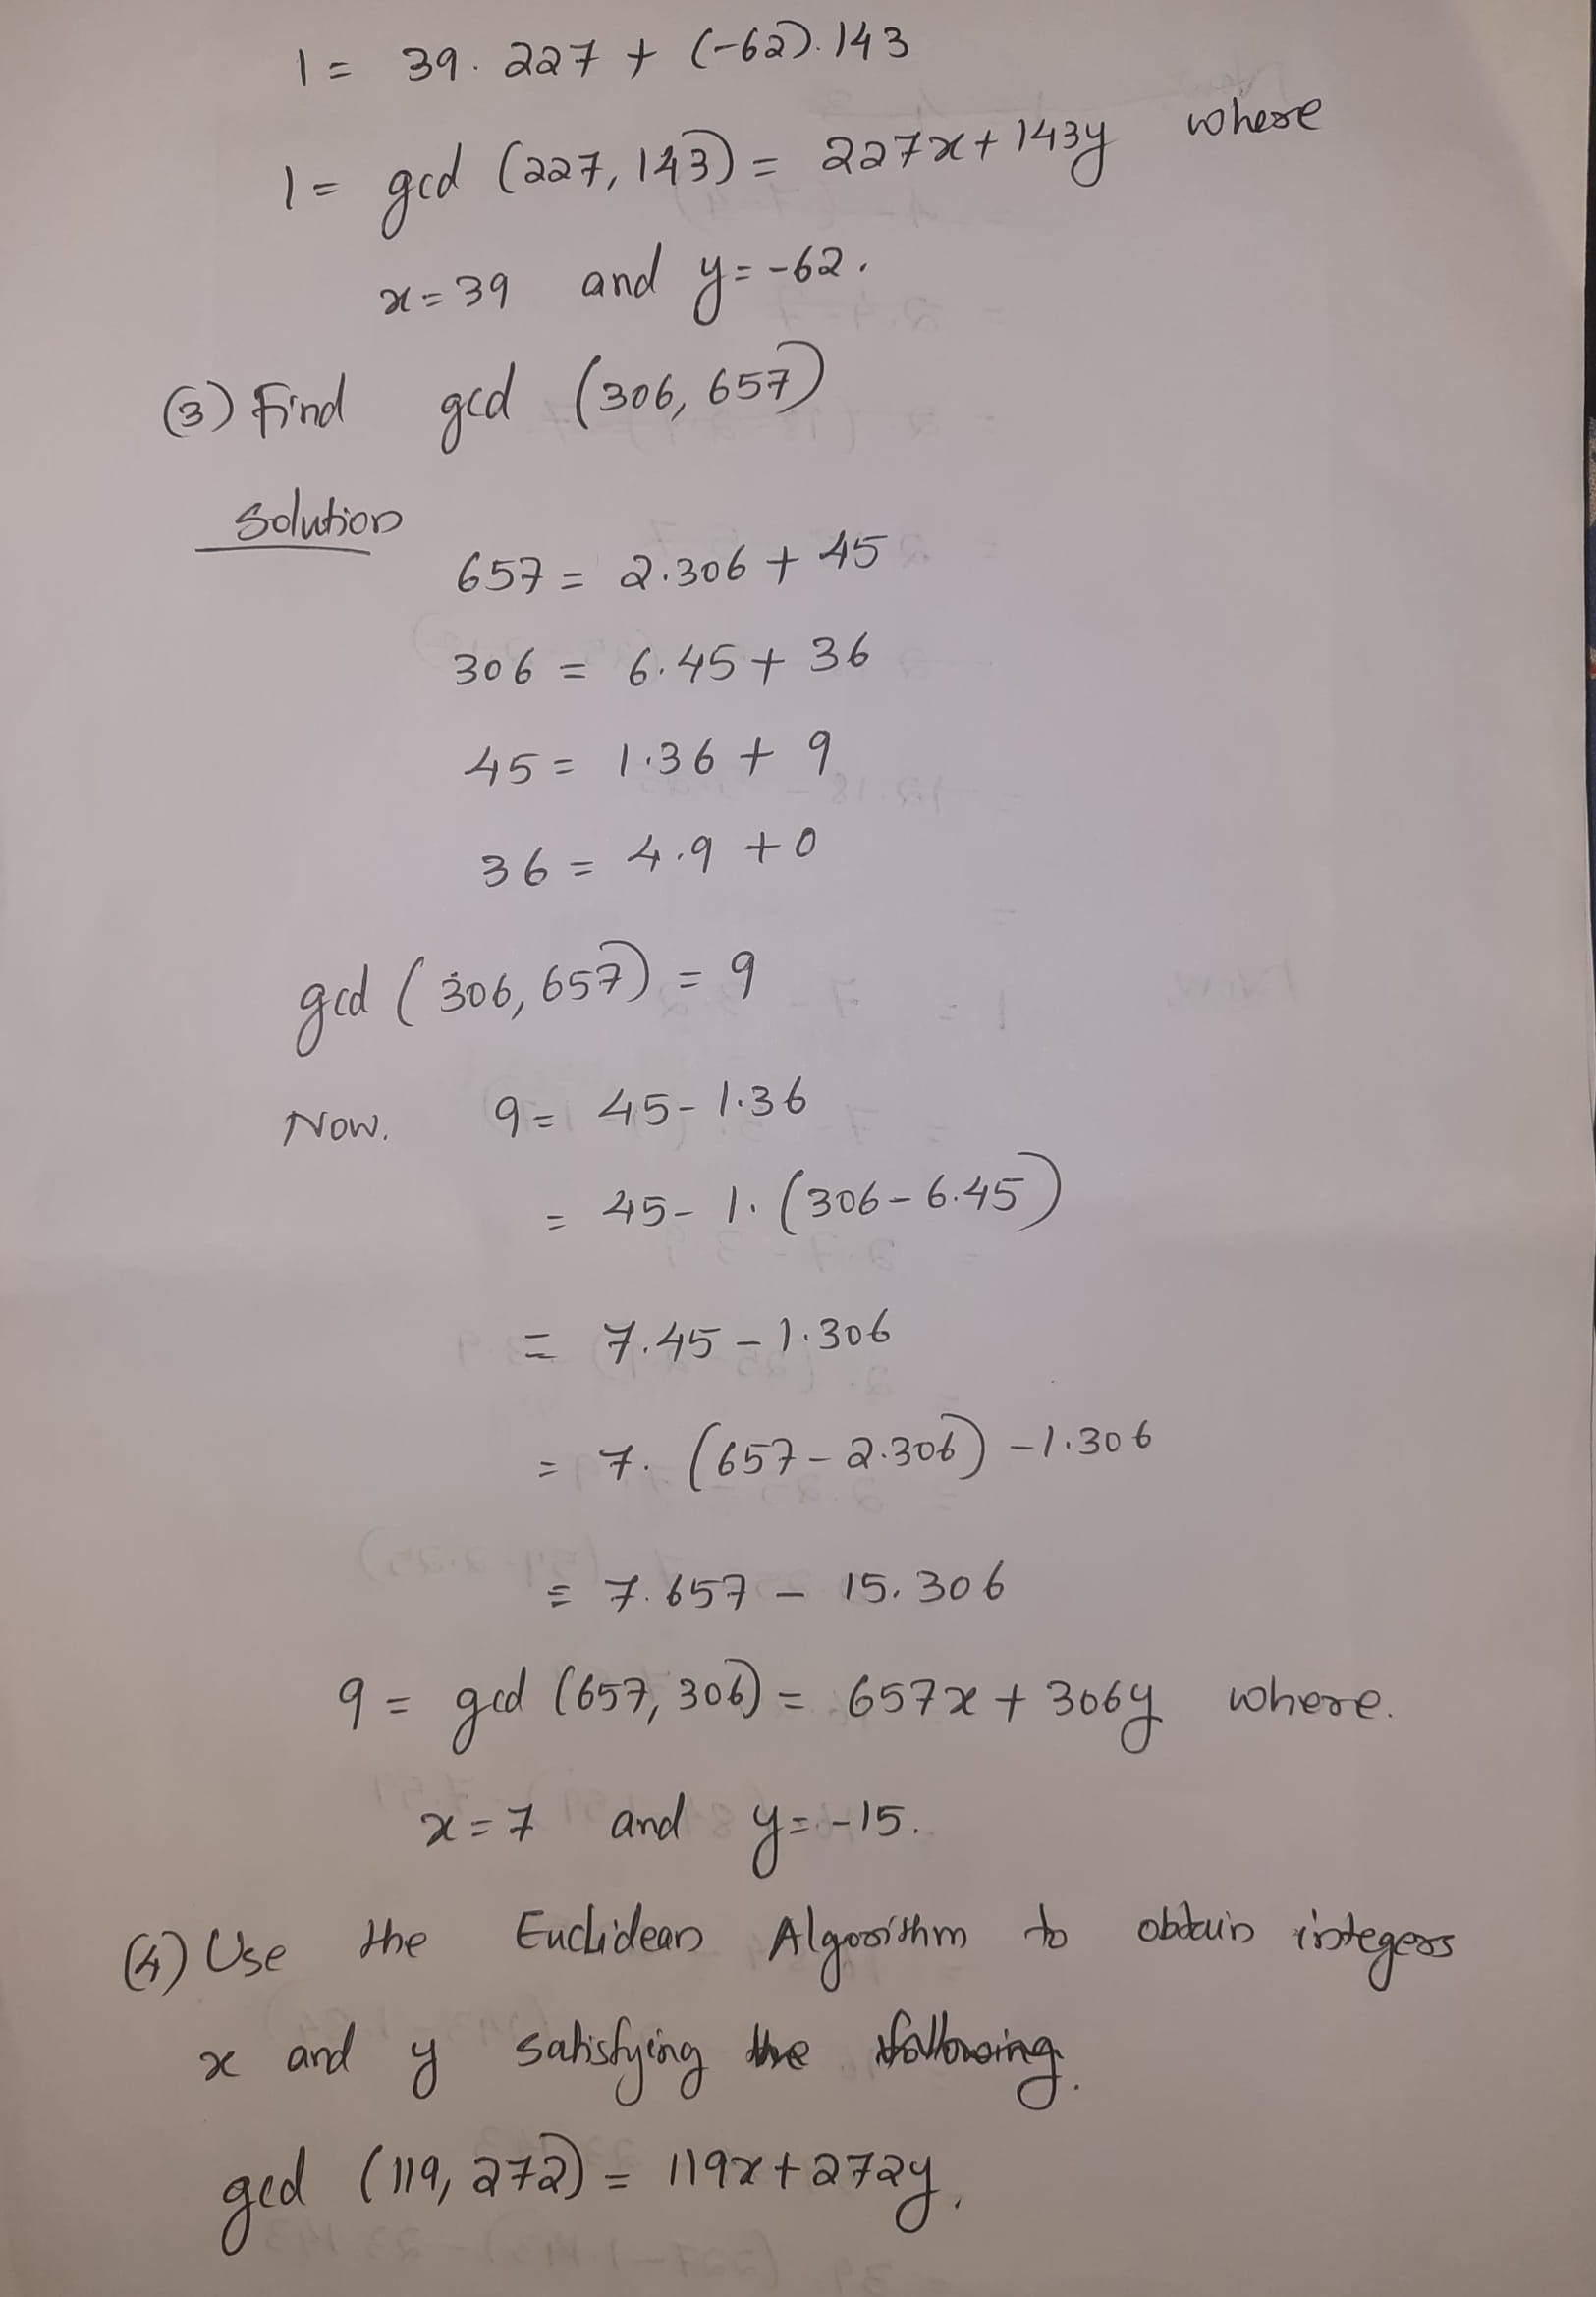 1 = 39. 227 + (-62). 143
1 = gcd (227, 143) = 227x + 143y where
x = 39 and y = -62.
(3) Find gcd (306, 657)
Solution
657 = 2.306 + 45
306 = 6.45 + 36
45 = 1.36 + 9
36 = 4.9 + 0
gcd (306, 657) = 9
Now. 9 = 45 - 1.36
= 45 - 1. (306 - 6.45)
= 7.45 - 1.306
= 7. (657 - 2.306) - 1.306
= 7.657 - 15.306
9 = gcd (657, 306) = 657x + 306y where.
x = 7 and y = -15.
(4) Use the Euclidean Algorithm to obtain integers
x and y satisfying the following.
gcd (119, 272) = 119x + 272y.